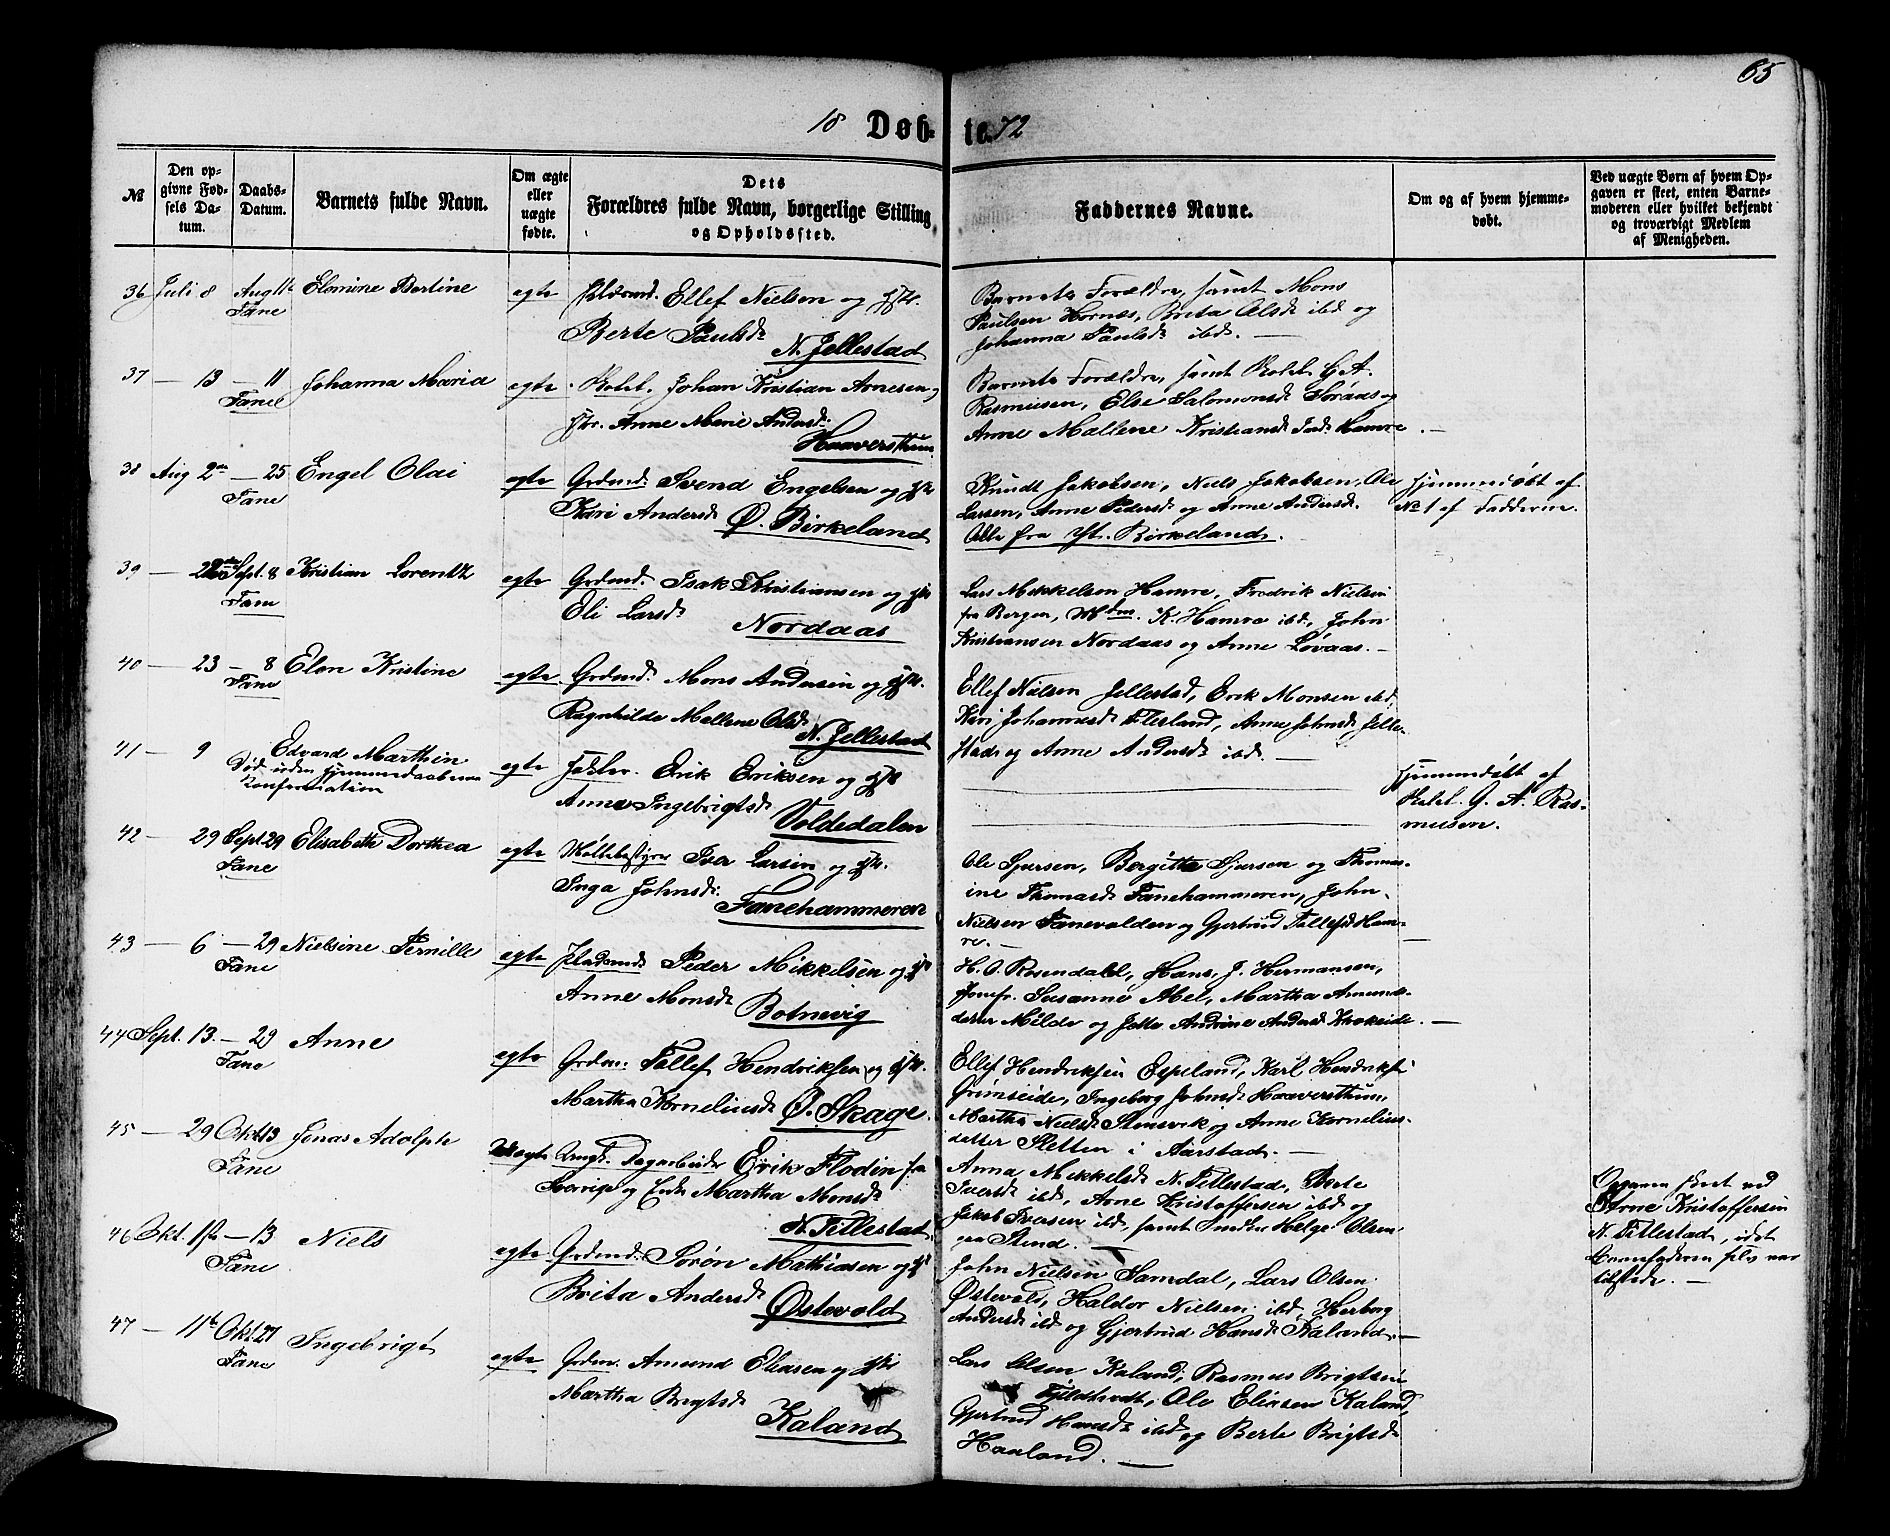 65
18 Døb- te. 72
№
Den op-
givne Fød-
sels Da-
tum.
Daabs-
Datum.
Barnets fulde Navn.
Om ægte
eller
uægte
fødte.
Dets
Forældres fulde Navn, borgerlige Stilling
og Opholdssted.
Faddernes Navne.
Om og af hvem hjemme-
døbt.
Ved uægte Børn af hvem Op-
gaven er skeet, enten Barne-
moderen eller hvilket bekjendt
og troværdigt Medlem
af Menigheden.
36 Juli 8 Aug 11te Elomine Bertine egte Pldsmd. Ellef Nielsen og Hstr.
Fane
Berte Paulsdr
N. Jellestad
Barnets Forældre, samt Mons
Paulsen Hornæs, Brita Olsdr ibd og
Johanna Paulsdr ibd. —
37 — 13 — 11 Johanna Maria egte Johan Kristian Arnesen,
Fane
Anne Marie Andersdr.
Haaversthun
Barnets Forældre, samt G A.
Rasmusen, Else Salomonsdr Søraas og
Anne Mallene Kristiansdr Hamre —
38 Aug 2den — 25 Engel Olai egte Grdmd. Svend Engelsen og Hstr
Fane
Kari Andersdr Ø. Birkeland
Knudt Jakobsen, Niels Jakobsen, Ole
Larsen, Anne Pedersdr og Anne Andersdr.
Alle fra Birkeland.
Hjemmedøbt af
No 1 af Fadderne.
39 — Sept. 8 Kristian Lorentz egte Grdmd. Isak Kristiansen og Hstr
Fane
Eli Larsdr
Nordaas
Lars Mikkelsen Hamre, Fredrik Nielsen
fra Bergen, K. Hamre ibd, John
Kristiansen Nordaas og Anne Løvaas. —
40 — 23 — 8 Elen Kristine egte Grdmd. Mons Andersen og Hstr.
Fane
Ragnhilde Mallene Olsdr
N. Jellestad
Ellef Nielsen Jellestad, Erik Monsen ibd,
Kari Johannesdr Flesland, Anne Johnsdr Jelle-
stad og Anne Andersdr ibd. —
41 — 9 Edvard Marthin egte Erik Eriksen og Hstr
Død uden Hjemmedaabens
Konfirmation
Anna Ingebrigtsdr
Voldedalen
Hjemmedøbt af
G. A. Ras-
musen.
42 — 29 Sept 29 Elisabeth Dorthea egte Møllebestyrer Iver Larsen og Hstr.
Fane
Inga Johnsdr.
Fanehammeren
Ole Sjursen, Bergitte Sjursen og Thomas-
ine Thomasdr Fanehammeren, John
Nielsen Fanevolden og Gjertrud Tollefsdr Ham-
re. —
43 — 6 — 29 Nielsine Pernille egte Pladsmd. Peder Mikkelsen og Hstr
Fane
Anne Monsdr
Botnevig
H. O. Rosendahl, Hans J. Hermansen,
Jomfr. Susanne Abel, Martha Amunds-
datter Milde og Andrine Andersdr Krokeide. —
44 Sept. 13. — 29 Anne egte Grdmd. Tollef Hendriksen og Hstr.
Fane
Martha Korneliusdr Ø. Skage.
Ellef Hendriksen Espeland, Karl Hendriksen
Grimseide, Ingeborg Johnsdr Haaversthun,
Martha Nielsdr Stensvik og Anne Kornelius-
datter Sletten i Aarstad. —
45 — 29 Okt 13 Jonas Adolph uegte Ungk. Dagarbeider Erik Flodin fra
Fane
Sverrige og Enke Martha Monsdr
N. Titlestad.
Anna Mikkelsdr N. Titlestad, Berte
Iversdr ibd, Arne Kristoffersen ibd og
Jakob Iversen ibd, samt Helge Olsen
paa Stend. —
Opgaven skeet ved
Arne Kristoffersen
N. Titlestad, idet
Barnefaderen selv var
tilstede. —
46 Okt. 1ste — 13 Niels egte Grdmd. Søren Mathiasen og Hstr
Fane
Brita Andersdr
Østevold
John Nielsen Samdal, Lars Olsen
Østevold, Haldor Nielsen ibd, Herborg
Andersdr ibd og Gjertrud Hansdr Kaland. —
47 — 11te Okt 27 Ingebrigt egte Grdmd. Amund Eliasen og Hstr
Fane
Martha Brigtsdr
Kaland
Lars Olsen Kaland, Rasmus Brigtsen
Fjeldstvedt, Ole Eliasen Kaland,
Gjertrud Hansdr ibd og Berte Brigtsdr
Haaland. —